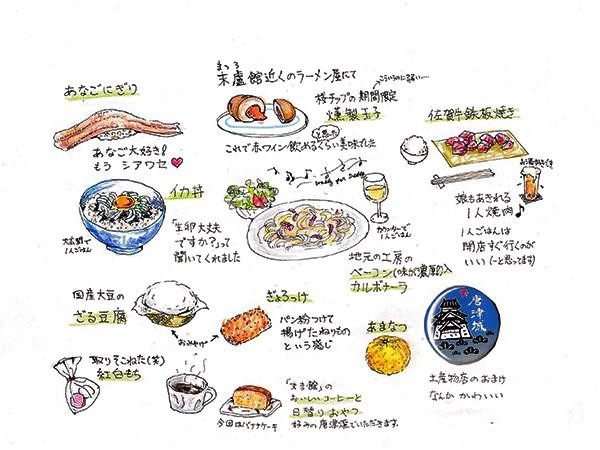 あなごにぎり
あなご大好き!
もう シアワセ♥
まつろ
末盧館近くのラーメン屋にて
桜チップの期間限定
燻製玉子
これでホワイン飲めるくらい美味でした
と思った
佐賀牛鉄板焼き
娘もあきれる
1人焼肉
1人ごはんは
閉店すぐ行くのが
いい(ーと思ってます)
イカ丼
「生卵大丈夫
ですか?」って
聞いてくれました
1人ごはん
カウンターで
1人ごはん
地元の工房の
ベーコン(味が濃厚)入
カルボナーラ
国産大豆の
ざる豆腐
おみやげ
ぎょろっけ
パン粉つけて
揚げたねりもの
という感じ
あまなつ
唐津城
土産物店のおまけ
なんか かわいい
取りそこねた(笑)
紅白もち
おいしいコーヒーと
日替りおやつ
好みの唐津焼でいただきます。
今回はバナナケーキ